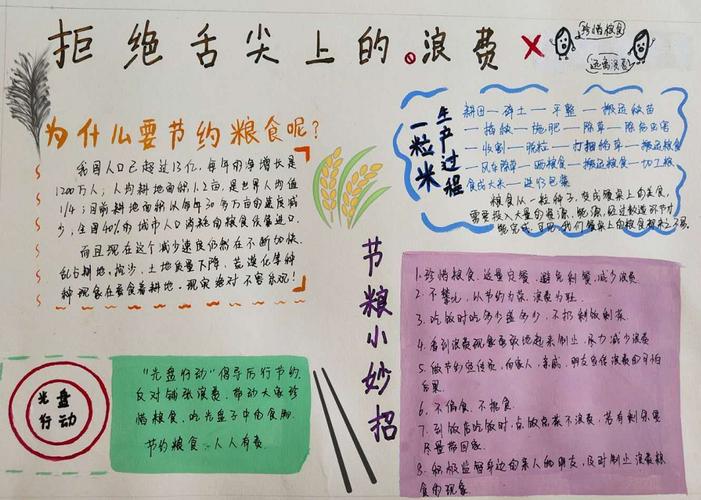 拒绝舌尖上的浪费
珍惜粮食
远离浪费
为什么要节约粮食呢?
我国人口已超过13亿,每年的净增长是
1200万人;人均耕地面积1.2亩,是世界人均值
1/4;目前耕地面积以每年30多万亩的速度减
少,全国40%的城市人口消耗的粮食依靠进口.
而且现在这个减少速度仍然在不断加快.
乱占耕地,流沙,土地质量下降,荒漠化等种
种现象在蚕食着耕地.现实绝对不容乐观!
一粒米
生产过程
耕田—碎土—平整—搬运秧苗
—插秧—施肥—除草—除病虫害
—收割—脱粒—打捆稻草—搬运粮食
—风车除碎—晒粮食—搬运粮食—加工粮
食成大米—进行包装
粮食从一粒种子,变成餐桌上的美食,
需要投入大量的资源,能源,经过数道环节才
能完成.可见,我们餐桌上的粮食都来之不易.
节粮小妙招
1.珍惜粮食.适量定餐.避免剩餐,减少浪费.
2.不攀比,以节约为荣,浪费为耻.
3.吃饭时吃多少盛多少,不扔剩饭剩菜.
4.看到浪费现象勇敢地起来制止,尽力减少浪费
5.做节约宣传员,向家人,亲戚,朋友宣传浪费的可怕
后果.
6.不偏食.不挑食.
7.到饭店吃饭时,点饭菜不浪费,若有剩余要
尽量带回家.
8.积极监督身边的亲人和朋友,及时制止浪费粮
食的现象.
光盘
行动
"光盘行动"倡导厉行节约.
反对铺张浪费,带动大家珍
惜粮食、吃光盘子中的食物.
节约粮食,人人有责.